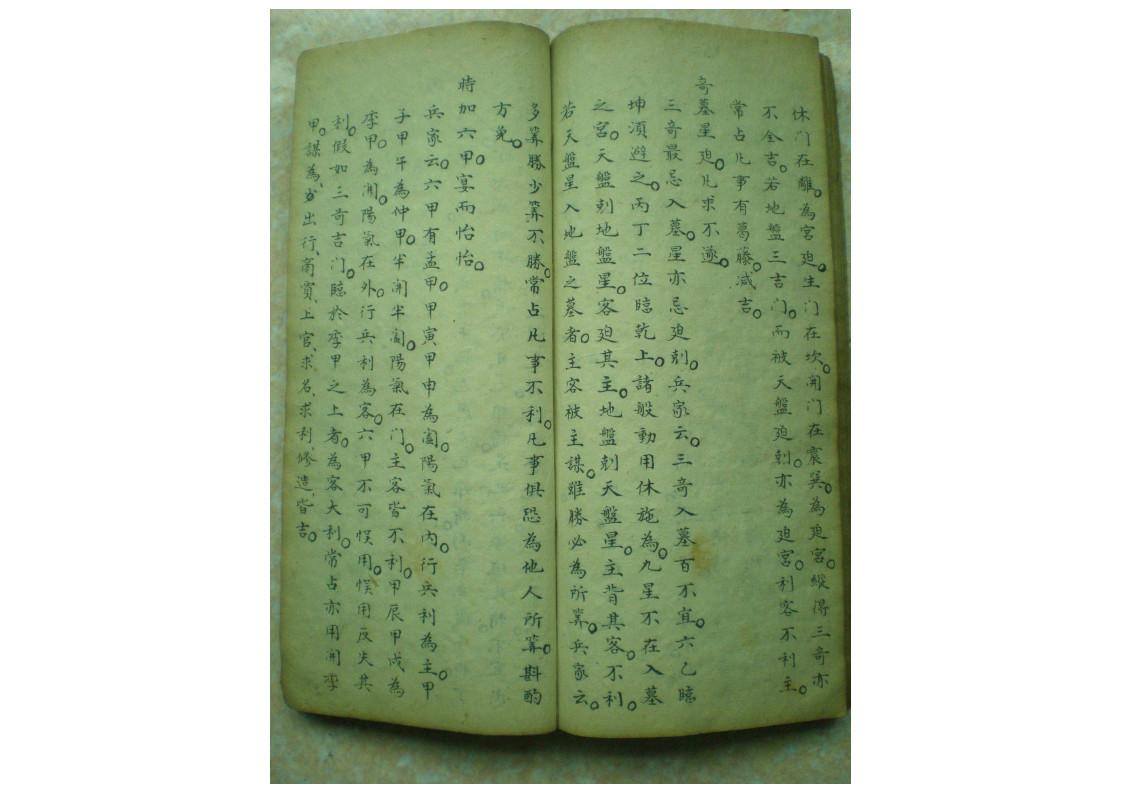 休门在離。為宮廹。生门在坎。開门在震巽。為廹宮。縱得三奇亦
不全吉。若地盤三吉门。而被天盤廹剋。亦為廹宮。利客不利主。
常占凡事有葛藤。減吉。
奇墓星廹。凡求不遂。
三奇最忌入墓。星亦忌廹剋。兵家云。三奇入墓百不宜。六乙臨
坤須避之。丙丁二位臨乾上。諸般動用休施為。九星不在入墓
之宮。天盤剋地盤星。客廹其主。地盤剋天盤星。主背其客。不利。
若天盤星入地盤之墓者。主客被主謀。雖勝必為所筭。兵家云。
多筭勝少筭不勝。常占凡事不利。凡事俱恐為他人所筭。斟酌
方免。
時加六甲。宴而怡怡。
兵家云。六甲有孟甲。甲寅甲申為闔。陽氣在內。行兵利為主。甲
子甲午為仲甲。半開半闔。陽氣在门。主客皆不利。甲辰甲戌為
季甲。為開。陽氣在外。行兵利為客。六甲不可悮用。悮用反失其
利。假如三奇吉门。臨於季甲之上者。為客大利。常占亦用開季
甲。謀為、出行、商賈、上官、求名、求利、修造、皆吉。